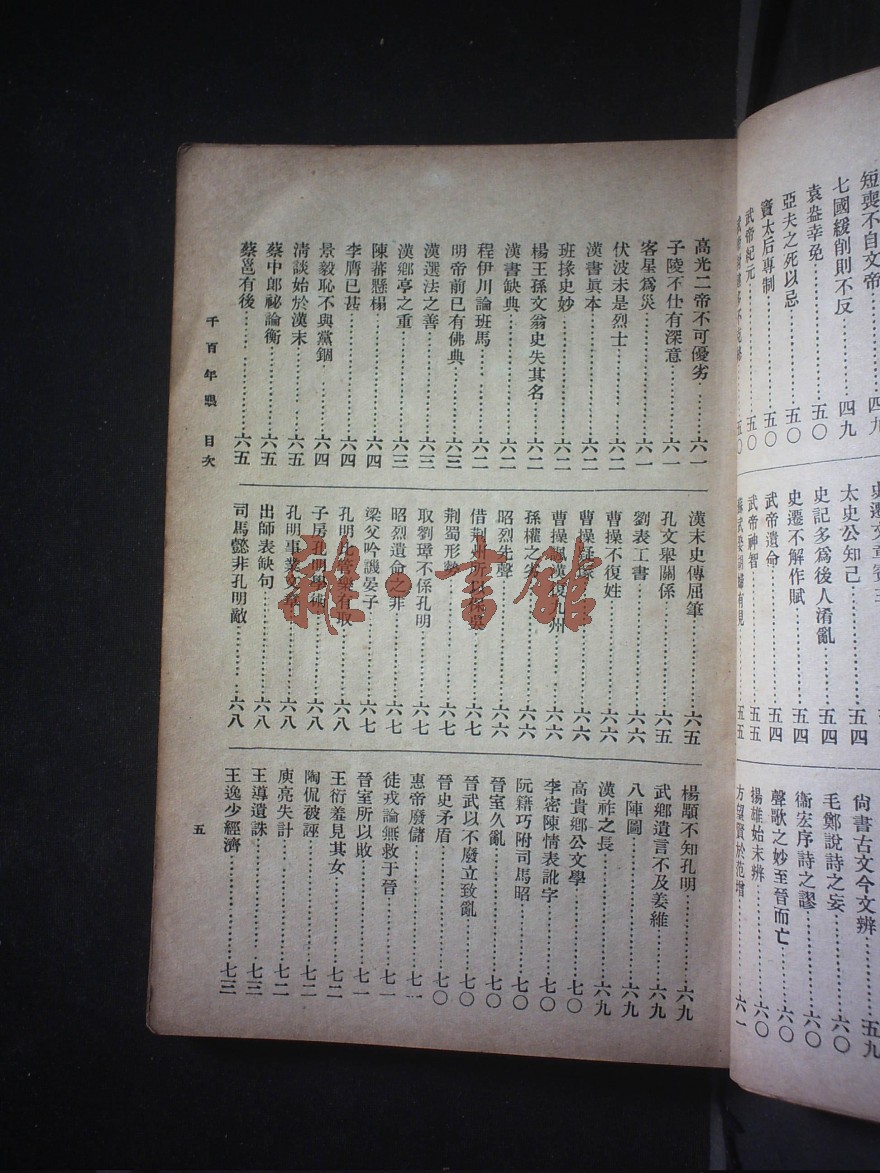 短喪不自文帝……四九
七國緩削則不反……四九
袁盎幸免……五〇
亞夫之死以忌……五〇
竇太后專制……五〇
武帝紀元……五〇
太史公知己……五四
史記多爲後人淆亂……五四
史遷不解作賦……五四
武帝遺命……五五
武帝神智……五五
尙書古文今文辨……五九
毛鄭說詩之妄……六〇
衞宏序詩之謬……六〇
聲歌之妙至晉而亡……六〇
揚雄始末辨……六〇
高光二帝不可優劣……六一
子陵不仕有深意……六一
客星爲災……六一
伏波未是烈士……六一
漢書眞本……六二
班掾史妙……六二
楊王孫文翁史失其名……六二
漢書缺典……六二
程伊川論班馬……六二
明帝前已有佛典……六三
漢選法之善……六三
漢鄉亭之重……六三
陳蕃懸榻……六四
李膺已甚……六四
景毅恥不與黨錮……六四
淸談始於漢末……六五
蔡中郎祕論衡……六五
蔡邕有後……六五
漢末史傳屈筆……六五
孔文舉關係……六五
劉表工書……六六
曹操不復姓……六六
曹操疑冢……六六
曹操諷漢復九州……六六
孫權之劣……六六
昭烈先聲……六六
借荆州所以保吳……六七
荆蜀形勢……六七
取劉璋不係孔明……六七
昭烈遺命之非……六七
梁父吟譏晏子……六七
孔明比管樂有取……六八
子房孔明學術……六八
孔明事業文章……六八
出師表缺句……六八
司馬懿非孔明敵……六八
楊顒不知孔明……六九
武鄉遺言不及姜維……六九
八陣圖……六九
漢祚之長……六九
高貴鄉公文學……七〇
李密陳情表訛字……七〇
阮籍巧附司馬昭……七〇
晉室久亂……七〇
晉武以不廢立致亂……七〇
晉史矛盾……七〇
惠帝廢儲……七一
徒戎論無救于晉……七一
晉室所以敗……七一
王衍羞見其女……七二
陶侃被誣……七二
庾亮失計……七二
王導遺誅……七三
王逸少經濟……七三
千百年眼 目次
五
雜·書館